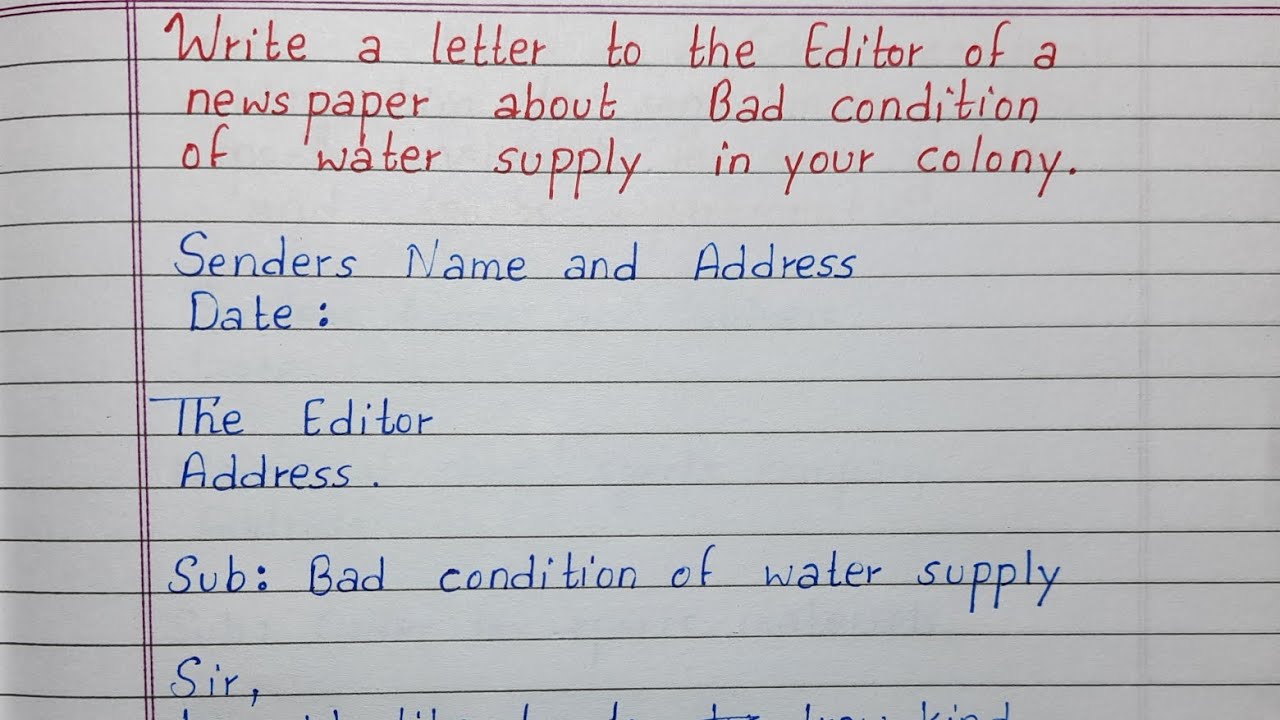 Write a letter to the Editor of a
newspaper about Bad condition
of water supply in your colony.
Senders Name and Address
Date :
The Editor
Address.
Sub: Bad condition of water supply
Sir,